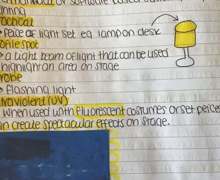 or software based
Practical
• piece of light set eg. lamp on desk
Profile spot
• a tight beam of light that can be used
highlight an area on stage
Strobe
• Flashing light
Ultraviolet (UV)
when used with fluorescent costumes or set pieces
can create spectacular effects on stage.